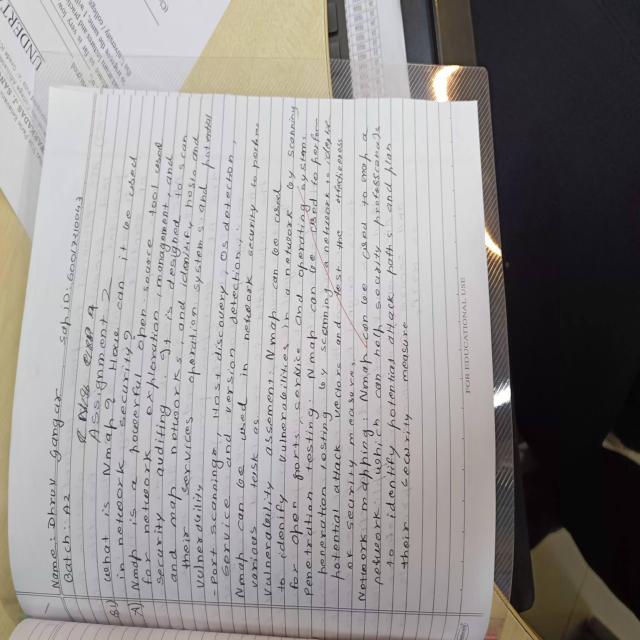 Name: Dhruv Gangar Sap ID: 60017210043
Batch: A2
Assignment 2
Q1) What is Nmap? How can it be used
in network security?
A) Nmap is a powerful open-source tool used
for network exploration, management, and
security auditing. It is designed to scan
and map networks, and identify hosts and
their services, operation systems, and potential
vulnerability.
- Port scanning, Host discovery, OS detection,
Service and version detection.
Nmap can be used in network security to perform
various task as
Vulnerability assement: Nmap can be used
to idenify vulnerabilities in a network by scanning
for open ports, service and operating system.
Penetration testing: Nmap can be used to perform
penetration testing by scanning a network to identify
potential attack vectors and test the effectiveness
of security measures.
Network mapping: Nmap can be used to map a
network, which can help security professionals
to identify potential attack paths and plan
their security measure
FOR EDUCATIONAL USE
UNDERT